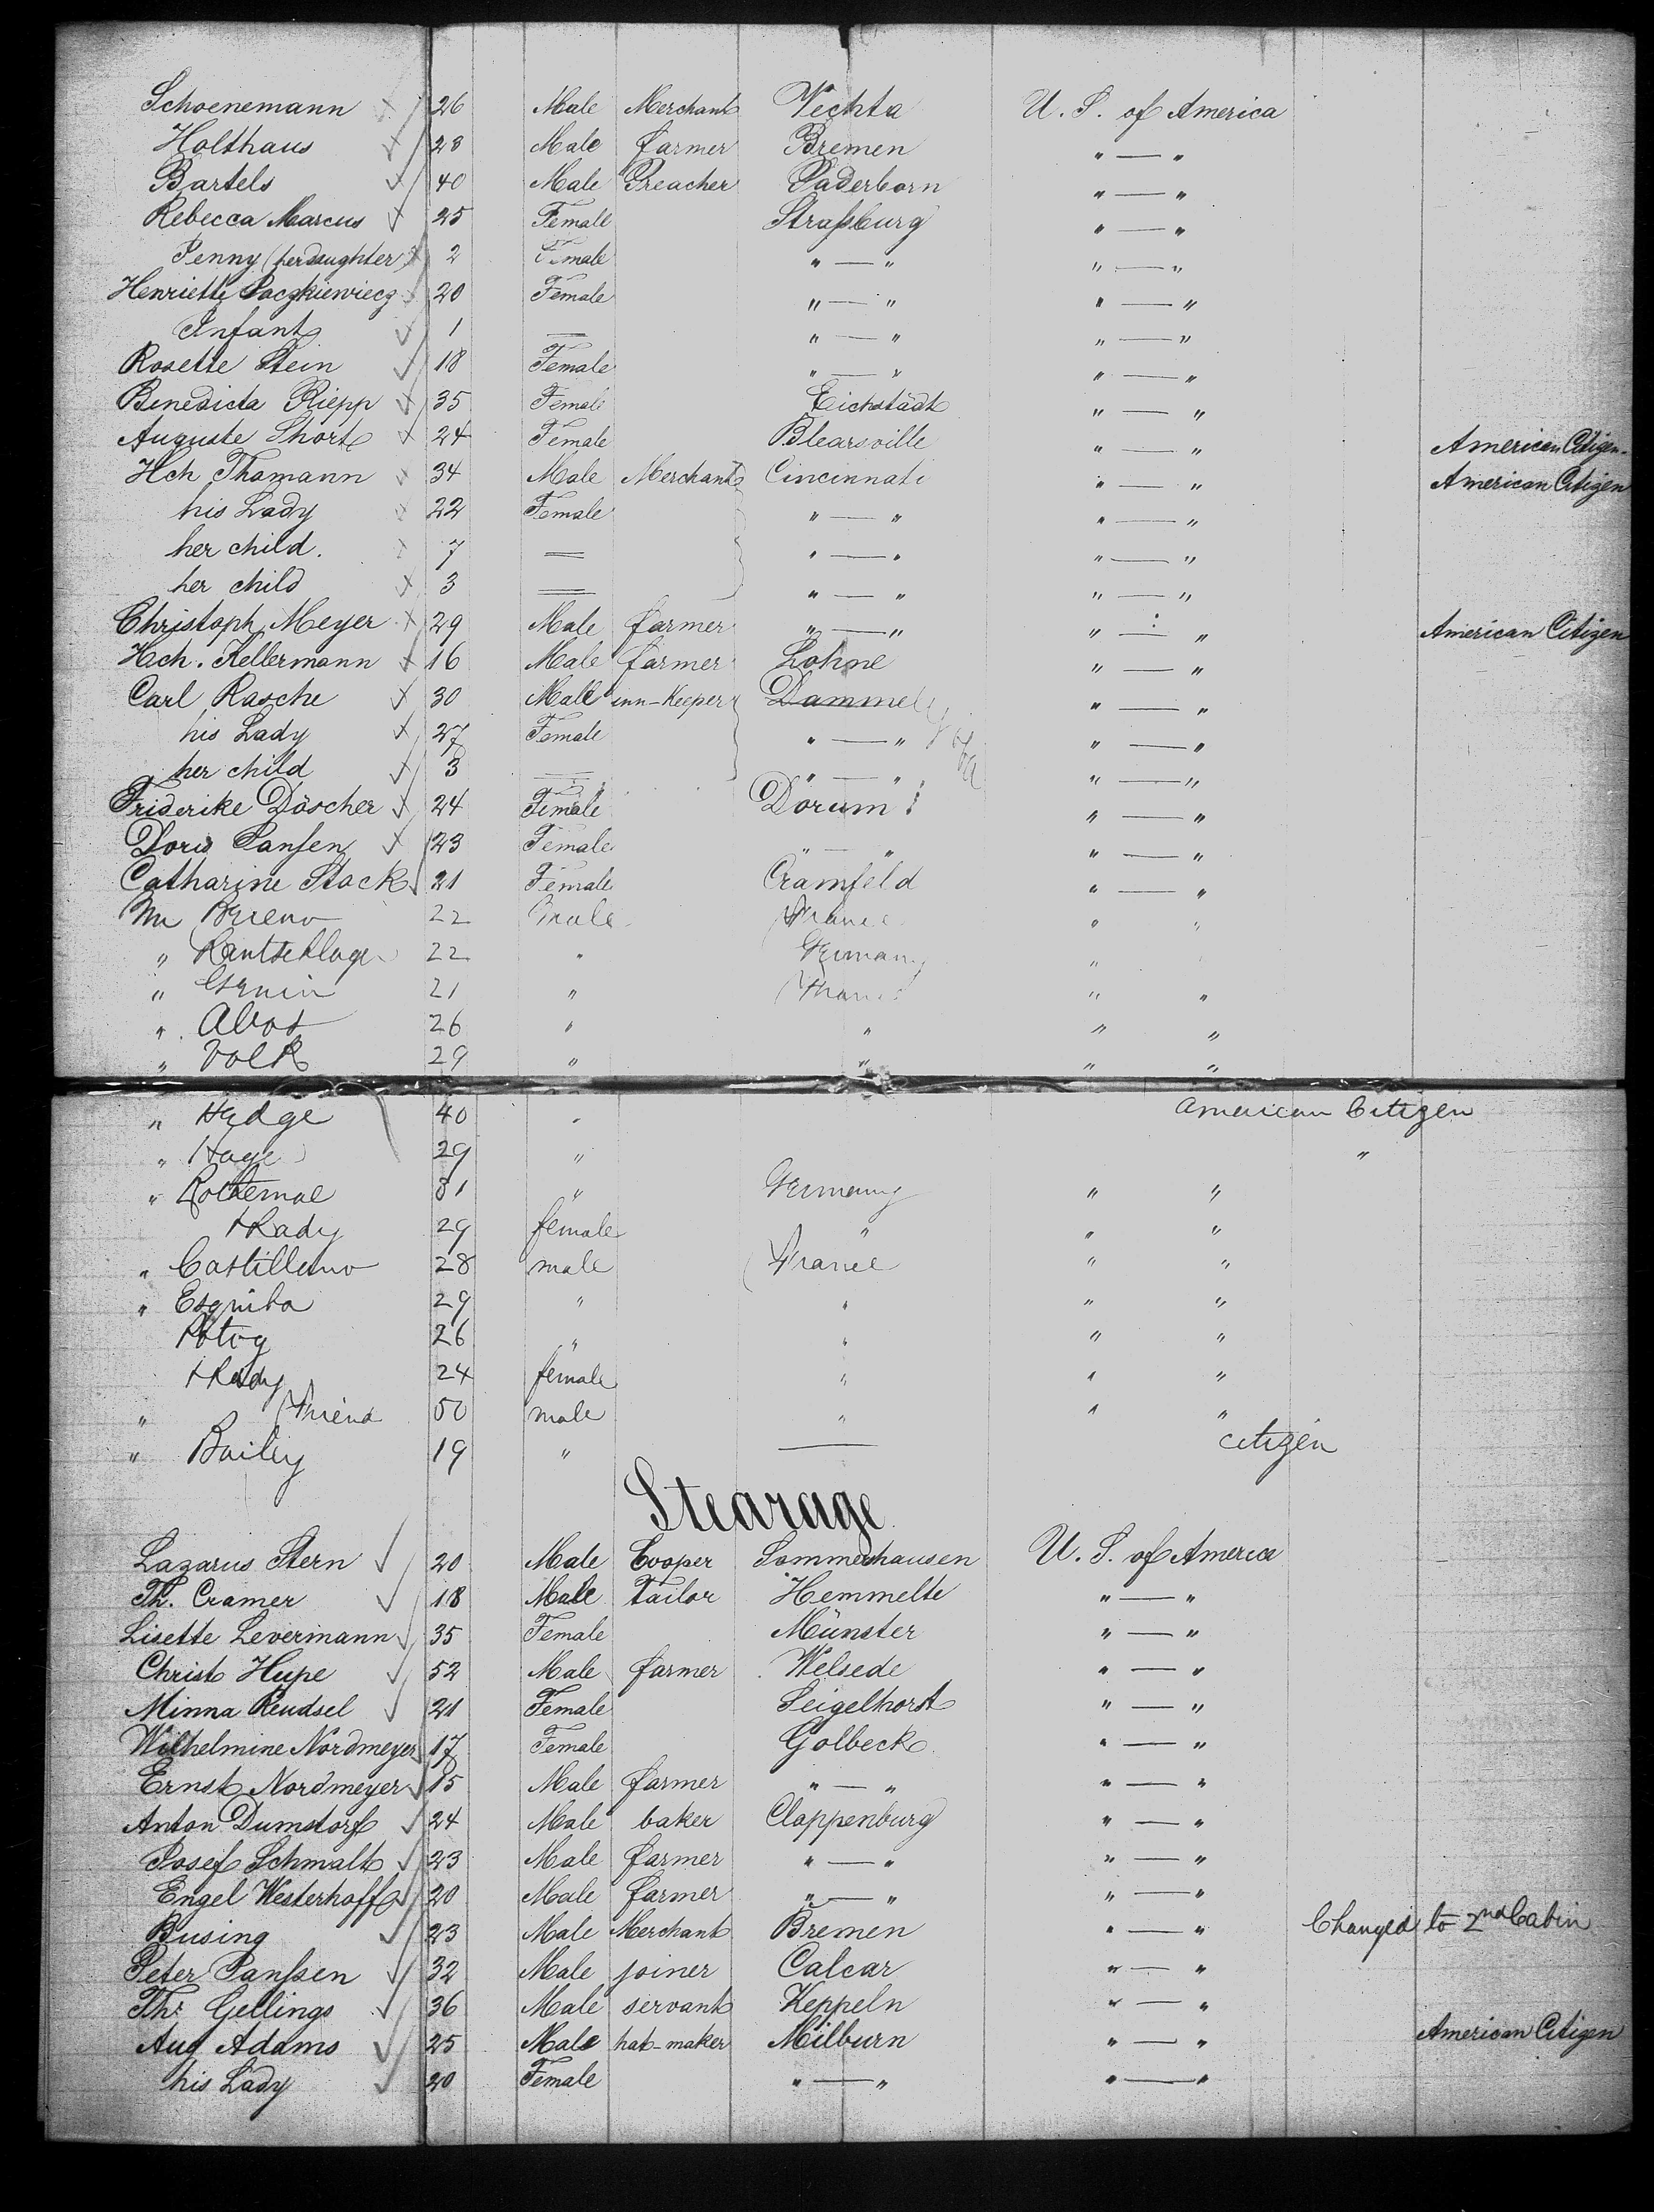 Schoenemann 26 Male Merchant Vechta U. S. of America
Holthaus 28 Male farmer Bremen " — "
Bartels 40 Male Preacher Paderborn " — "
Rebecca Marcus 25 Female Straßburg " — "
Jenny (her daughter) 2 Female " — " " — "
Henriette 20 Female " — " " — "
Infant 1 — " — " " — "
Rosette Stein 18 Female " — " " — "
Benedicta Riepp 35 Female Eichstädt " — "
Auguste Short 24 Female Blearsville " — " American Citizen.
Hch Thamann 34 Male Merchant Cincinnati " — " American Citizen
his Lady 22 Female " — " " — "
her child. 7 — " — " " — "
her child 3 — " — " " — "
Christoph Meyer 29 Male farmer " — " " — " American Citizen
Hch. Kellermann 16 Male farmer Lohne " — "
Carl Rasche 30 Male inn-keeper Damme " — "
his Lady 27 Female " — " " — "
her child 3 — " — " " — "
Friderike Döscher 24 Female Dorum " — "
Doris Jansen 23 Female " — " " — "
Catharine Stock 21 Female Cramfeld " — "
Mr 22 male France " "
" 22 " Germany "
" 21 " France " "
" 26 " " " "
" Volk 29 " " " "
" Hedge 40 " American Citizen
" Hage 29 " "
" 31 " Germany " "
+ Lady 29 female " " "
" 28 male France " "
" 29 " " " "
26 " " " "
+ Lady 24 female " " "
" friend 50 male " " "
" Bailey 19 " — citizen
Stearage
Lazarus Stern 20 Male Cooper Sommerhausen U. S. of America
Th. Cramer 18 Male Tailor Hemmelte " — "
Lisette Levermann 35 Female Münster " — "
Christ Hupe 52 Male farmer Welsede " — "
Minna Reudsel 21 Female Seigelhorst " — "
Wilhelmine Nordmeyer 17 Female Golbeck " — "
Ernst Nordmeyer 15 Male farmer " — " " — "
Anton Dumstorf 24 Male baker Cloppenburg " — "
Josef Schmalt 23 Male farmer " — " " — "
Engel Westerhoff 20 Male farmer " — " " — "
Busing 23 Male Merchant Bremen " — " Changed to 2nd Cabin
Peter Janßen 32 Male joiner Calcar " — "
Th. Gellings 36 Male servant Keppeln " — "
Aug Adams 25 Male hat-maker Milburn " — " American Citizen
his Lady 20 Female " — " " — "